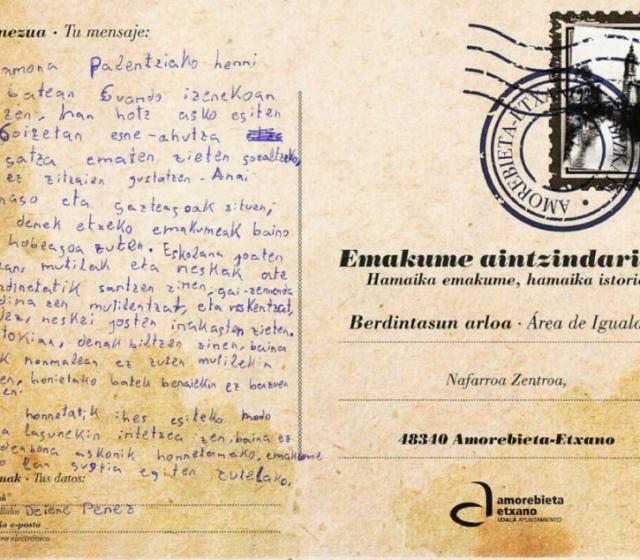 nezua · Tu mensaje:
amona Palentziako herri
batean izenekoan
zen, han hotz asko egiten
Goizetan esne-ahutza
gatza ematen zieten gozaltzeko,
ez zitzaien gustatzen. Anai
naso eta gazteagoak zituen,
denek etxeko emakumeak baino
hobeagoa zuten. Eskolara joaten
mutilak eta neskak ate
sartzen ziren, gai-zerrenda
zen mutilentzat, eta neskentzat,
neskei josten irakasten zieten.
tokian, denak biltzen ziren, baina
k normalean ez zuten mutilekin
en, honietako batek beraiekin ez bazuen
honnetatik ihes egiteko modo
a lagunekin intetzea zen, baina ez
denbora askorik honnetarako, emakume
o lan guztia egiten zutelako.
nak · Tus datos:
Perez
o e-posta
rreo electrónico
AMOREBIETA-ETXA
AMOREBIETA
Emakume aintzindari
Hamaika emakume, hamaika istori
Berdintasun arloa · Área de Iguald
Nafarroa Zentroa,
48340 Amorebieta-Etxano
amorebieta
etxano
UDALA AYUNTAMIENTO